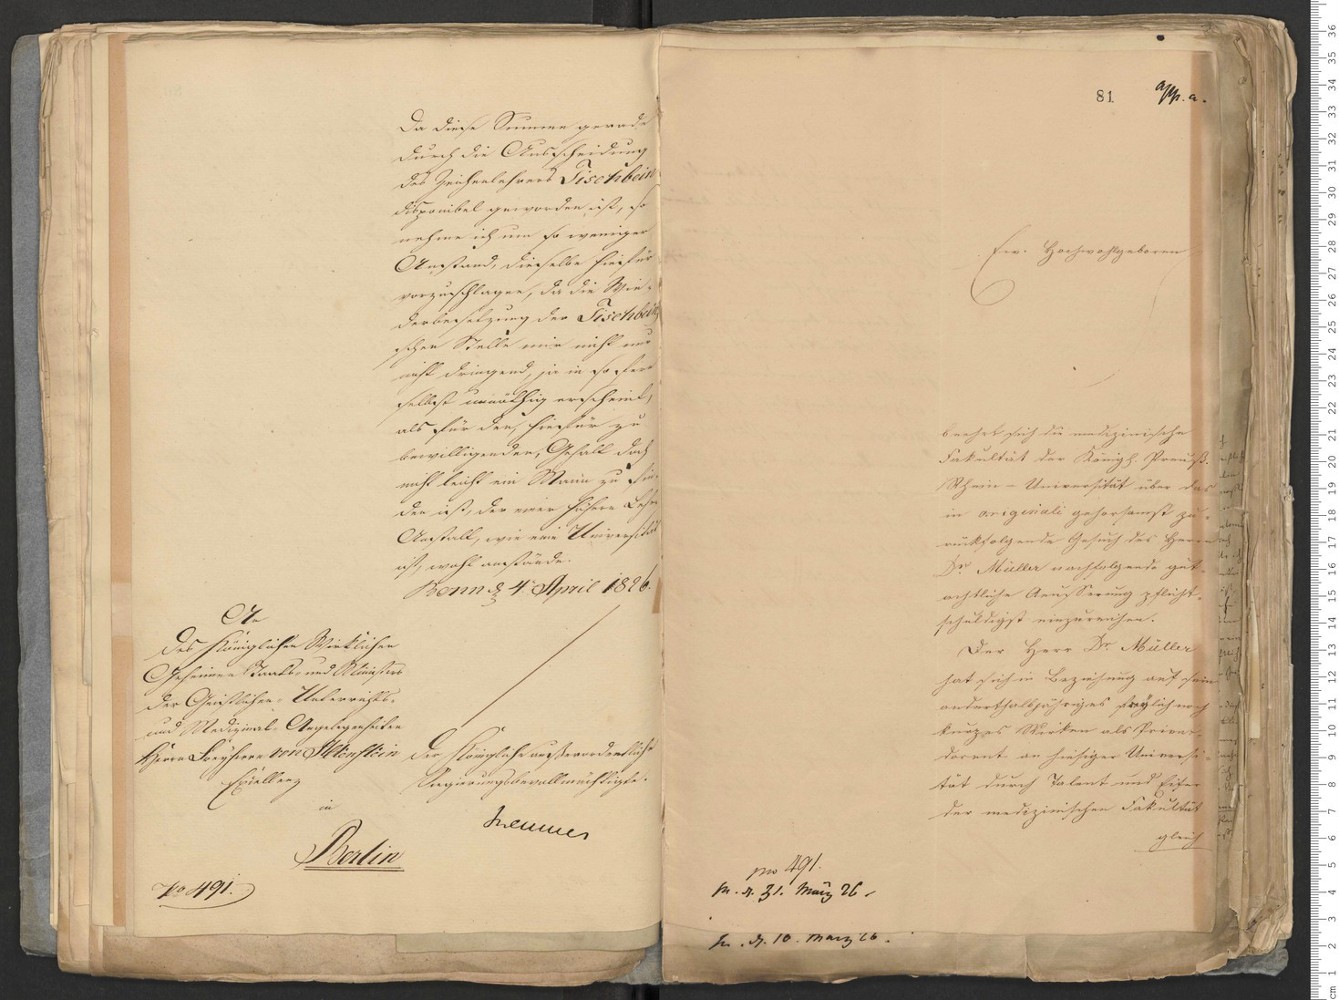 Da diese Summe gerade
durch die Ausscheidung
des Zeichenlehrers Tischbein
disponibel geworden ist, so
nehme ich um so weniger
Anstand, dieselbe hierfür
vorzuschlagen, da die Wie-
derbesetzung der Tischbein
schen Stelle mir nicht nur
nicht dringend, ja in so fern
selbst unnöthig erscheint,
als für den, hierfür zu
bewilligenden, Gehalt doch
nicht leicht ein Mann zu fin-
den ist, der einer höhern Lehr
Anstalt, wie eine Universität
ist, wohl anstände.
Bonn d. 4 April 1826.
An
des Königlichen Wirklichen
Geheimen Staats- und Ministers
der Geistlichen- Unterrichts-
und Medizinal-Angelegenheiten
Herrn Freyherrn von Altenstein
Excellenz
in
Berlin
No 491.
Der Königliche außerordentliche
Regierungsbevollmächtigte.
81
app. a.
Ew. Hochwohlgeboren
beehrt sich die medizinische
Fakultät der Königl. Preuß.
Rhein-Universität über das
in originali gehorsamst zu-
rückfolgende Gesuch des Herrn
Dr. Müller nachfolgende gut-
achtliche Aeusserung pflicht-
schuldigst einzureichen.
Der Herr Dr. Müller
hat sich in Beziehung auf sein
anderthalbjähriges freylich noch
kurzes Wirken als Privat-
docent an hiesiger Universi-
tät durch Talent und Eifer
der medizinischen Fakultät
gleich
no 491.
pr. d. 31. März 26
pr. d. 10. März 26.